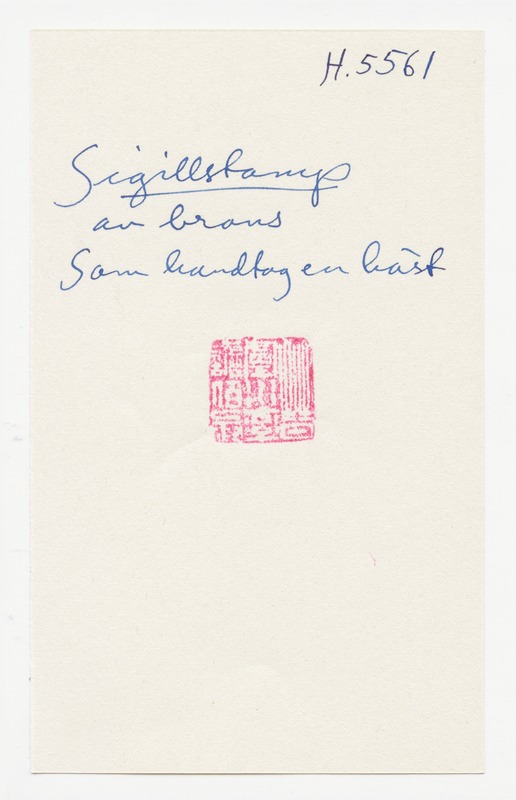 H.5561
Sigillstamp
av brons
Som handtag en häst